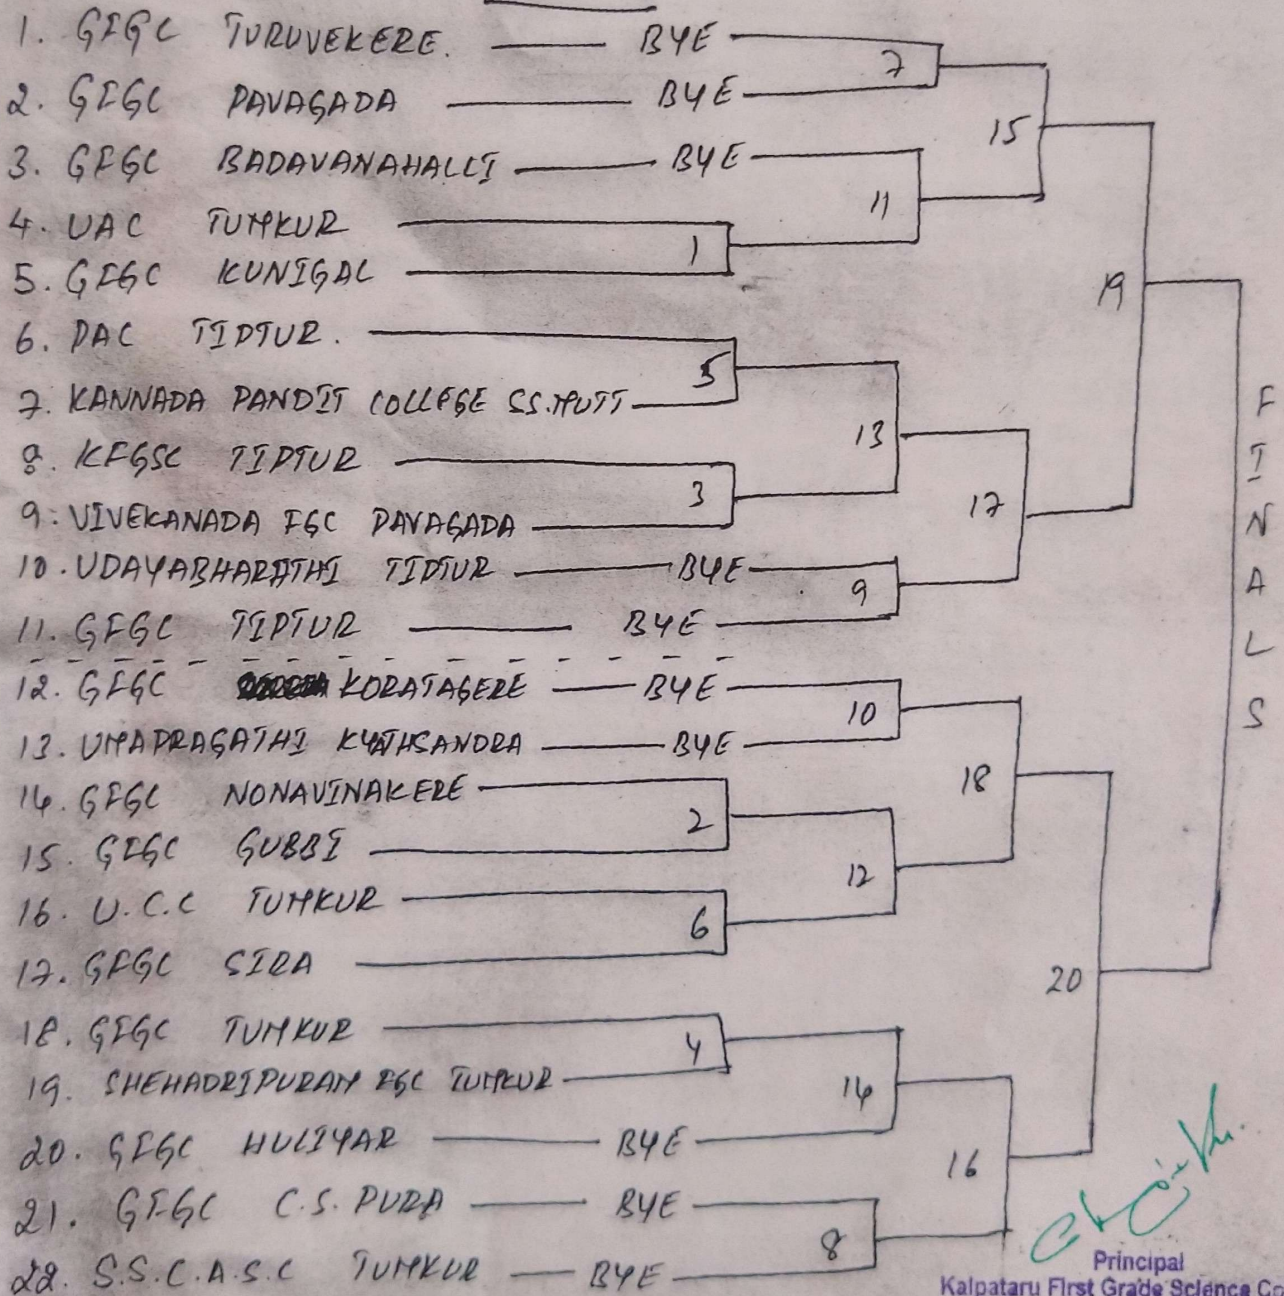 1. GFGC TURUVEKERE. BYE
7
2. GFGC PAVAGADA BYE
15
3. GFGC BADAVANAHALLI BYE
11
4. UAC TUMKUR
1
5. GFGC KUNIGAL
19
6. PAC TIPTUR.
5
7. KANNADA PANDIT COLLEGE SS.MUTT
13
8. KFGSC TIPTUR
3
9. VIVEKANADA FGC PAVAGADA
17
10. UDAYABHARATHI TIPTUR BYE
9
11. GFGC TIPTUR BYE
FINALS
12. GFGC KORATAGERE BYE
10
13. UMAPRAGATHI KYATHSANDRA BYE
18
14. GFGC NONAVINAKERE
2
15. GFGC GUBBI
12
16. U.C.C TUMKUR
6
17. GFGC SIRA
20
18. GFGC TUMKUR
4
19. SHEHADRIPURAM FGC TUMKUR
14
20. GFGC HULIYAR BYE
16
21. GFGC C.S. PURA BYE
8
22. S.S.C.A.S.C TUMKUR BYE
Principal
Kalpataru First Grade Science Co